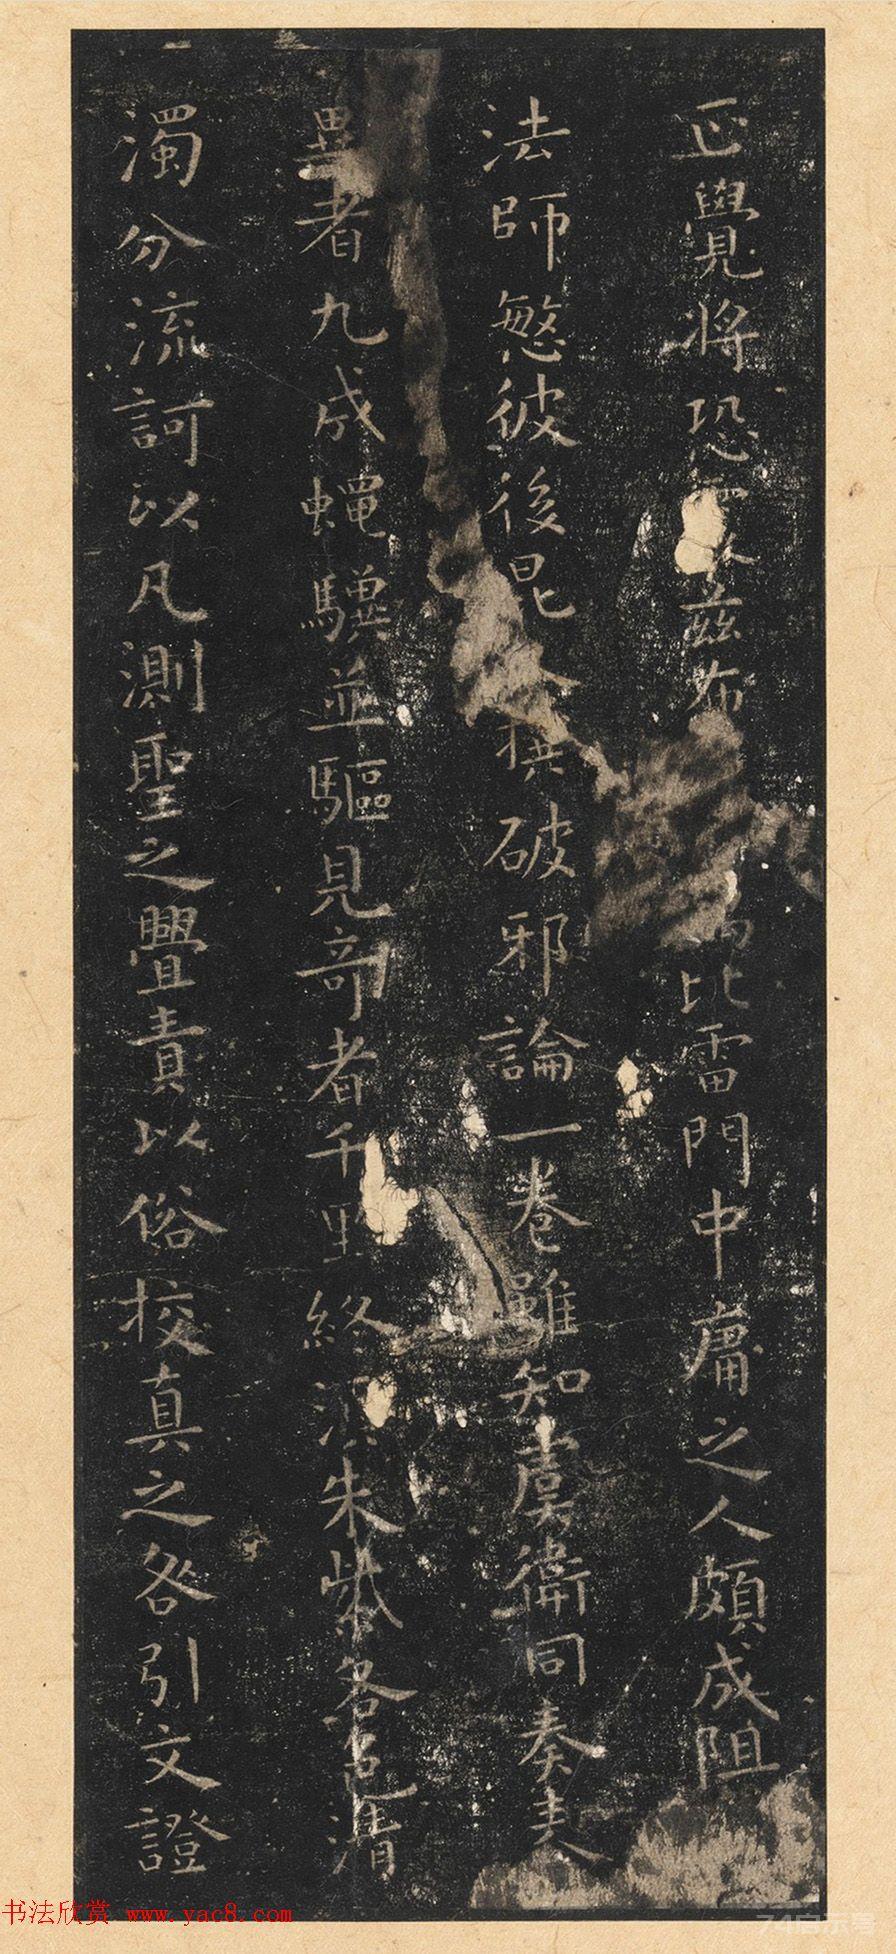 正覺將恐茲布比雷門中庸之人頗成阻
法師愍彼後昆撰破邪論一卷雖知虞衛同奏
異者九成蠅驥並驅見奇者千里終朱紫各色清
濁分流訶以凡測聖之舋責以俗校真之咎引文證
书法欣赏 www.yac8.com